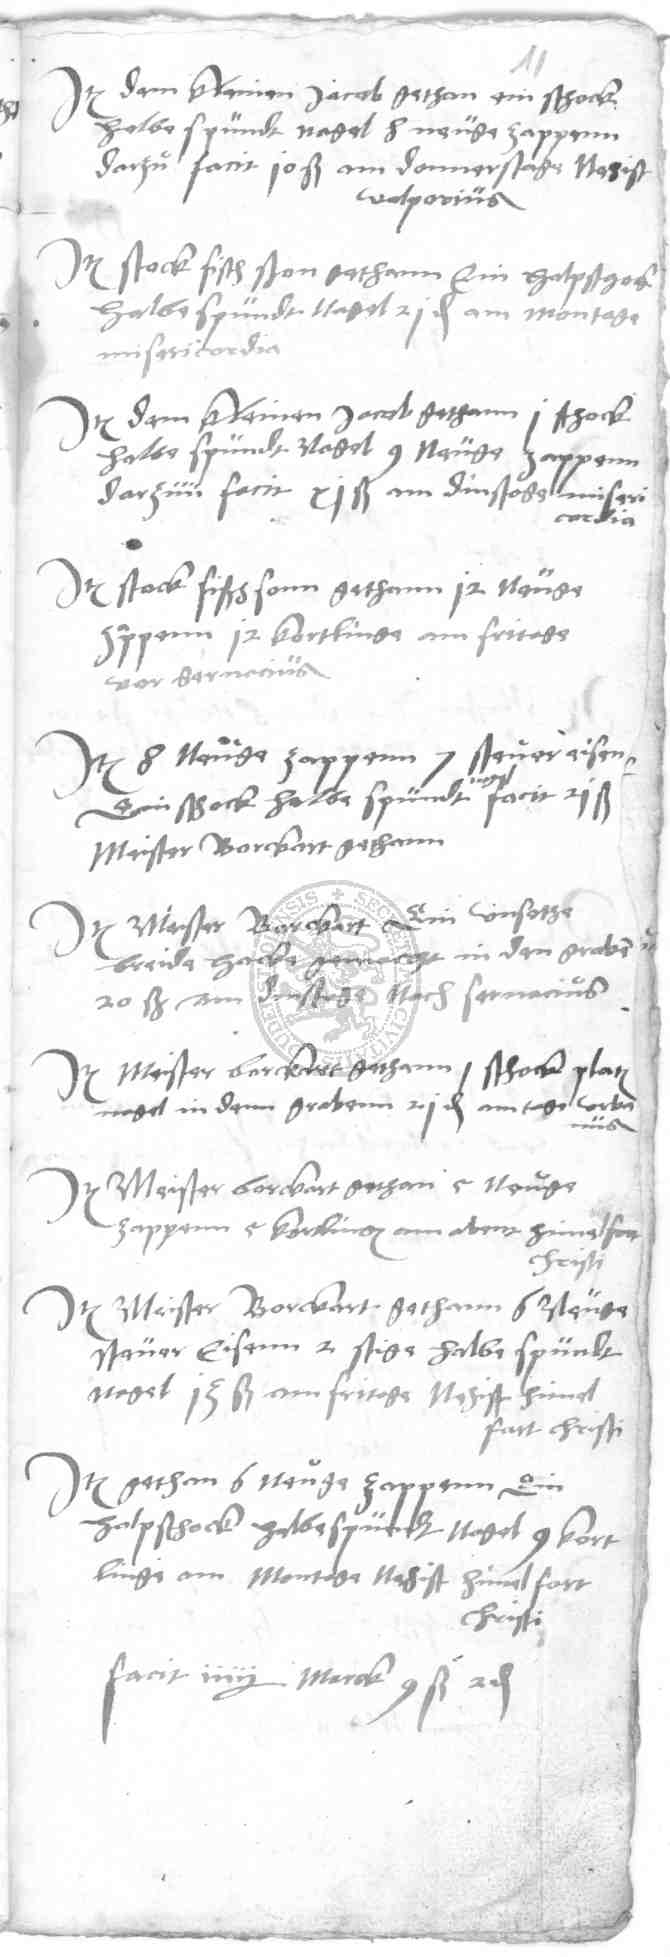 11
It dem kleinen Jacob gethan ein schock
halbe spündt nagel 8 neüge zappenn
darzu facit 10 ß am donnerstage Nehist
valporius
It stock fisch ßon gethann Ein halpschock
halbe spündt Nagel 21 ₰ am Montage
misericordia
It dem kleinen Jacob gethann j schock
halbe spündt Nagel 9 Neüge zappenn
darzuu facit xj ß am dinstage miseri
cordia
It stock fischsonn gethann 12 Neüge
zappenn 12 kortlinge am fritage
vor sernacius
It 8 Neüge zappenn 7 steuer eisen
Ein schock halbe spündt nagel facit 21 ß
Meister Borckart gethann
It Meister Borckart Ein
breide hacke gemacht in den graben
20 ß am dinstage Nach sernacius
It Meister borckart gethann j schock plat
nagel in denn grabenn 21 ₰ am tage urba
nus
It Meister borckart gethan 5 Neuge
zappenn 5 kortling am abent himelfart
christi
It Meister Borckart gethann 6 Neüge
steuer Eisenn 2 stige halbe spündt
nagel 13 ß am fritage Nehist himel
fart christi
It gethan 6 Neuge zappenn Ein
halpschock halbespündt Nagel 9 kort
linge am Montage Nehist himelfart
christi
facit iiij Marck 9 ß 2 ₰